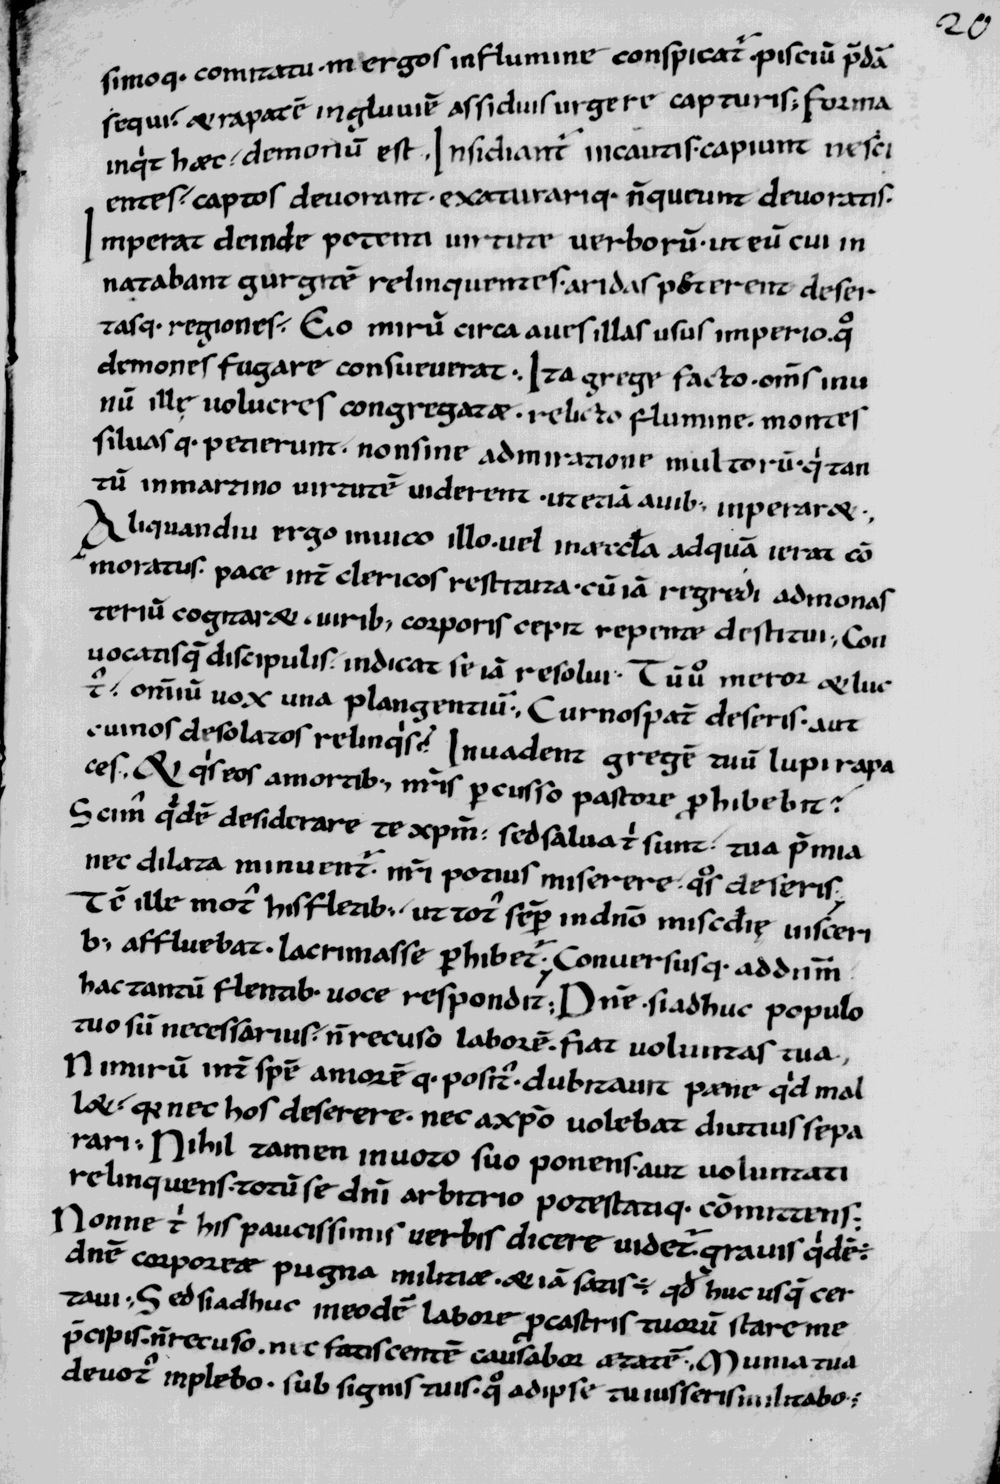 20
simoq· comitatu· mergos influmine conspicat᷒· pisciũ p̃dã
sequi· & rapacẽ ingluuiẽ assiduis urgere capturis; Forma
inq̇t hæc· demoniũ est· Insidiant᷒ incautis· capiunt nesci
entes· captos deuorant· exaturariq· ñqueunt deuoratis·
Imperat deinde potenti uirtute uerborũ· ut eũ cui in
natabant gurgitẽ relinquentes· aridas peterent deser
tasq· regiones· Eo mirũ circa aues illas usus imperio· q̊
demones fugare consueuerat·, Ita grege facto· om̃s inu
nũ illę uolucres congregatæ· relicto flumine· montes
siluasq· petierunt· nonsine admiratione multorũ· q̇ tan
tũ inmartino uirtutẽ uiderent· ut etiã auib; inperar&·,
Aliquandiu ergo inuico illo· uel inæccła adquã ierat cõ
moratus· pace int̃ clericos restituta· cũ iã regredi admonas
teriũ cogitar&· uirib; corporis cepit repente destitui·, Con
uocatisq̃ discipulis· indicat se iã resolui· Tũ uͦ meror & luc
t᷒· om̃iũ uox una plangentiũ·, Cur nos pat̃ deseris· aut
cui nos desolatos relinq̇s? Inuadent gregẽ tuũ lupi rapa
ces·, & q̇s eos amortib; nr̃is ꝑcusso pastore ꝓhibebit?
Scim᷒ q̇dẽ desiderare te xp̃m· sed salua ṫ sunt· tua p̃mia
nec dilata minuent᷒· nr̃i potius miserere· q̊s deseris;
Tẽ ille mot᷒ his fletib;· ut tot᷒ sẽp̱ indño miscdię uisceri
b; affluebat· lacrimasse ꝑhibet᷒· Conuersusq· addñm
hac tantũ flentib· uoce respondit; Dñe· siadhuc populo
tuo sũ necessarius· ñ recuso laborẽ· fiat uoluntas tua·,
Nimirũ int̃ spẽ amorẽq· posit᷒· dubitauit pæne q̇d mal
l&· quia nec hos deserere· nec axp̃o uolebat diutius sepa
rari; Nihil tamen inuoto suo ponens· aut uoluntati
relinquens· totũ se dñi arbitrio potestatiq· cõmittens;
Nonne ṫ his paucissimis uerbis dicere uidet᷒· grauis q̇dẽ
dñe corporeæ pugna militiæ· & iã satis· qđ huc usq̃ cer
taui·, Sed siadhuc ineodẽ labore ꝓcastris tuorũ stare me
p̃cipis· ñ recuso· nec fatiscentẽ causabor ætatẽ·, Munia tua
deuot᷒ inplebo· sub signis tuis· q̊ adipse tu iusseris militabo·;